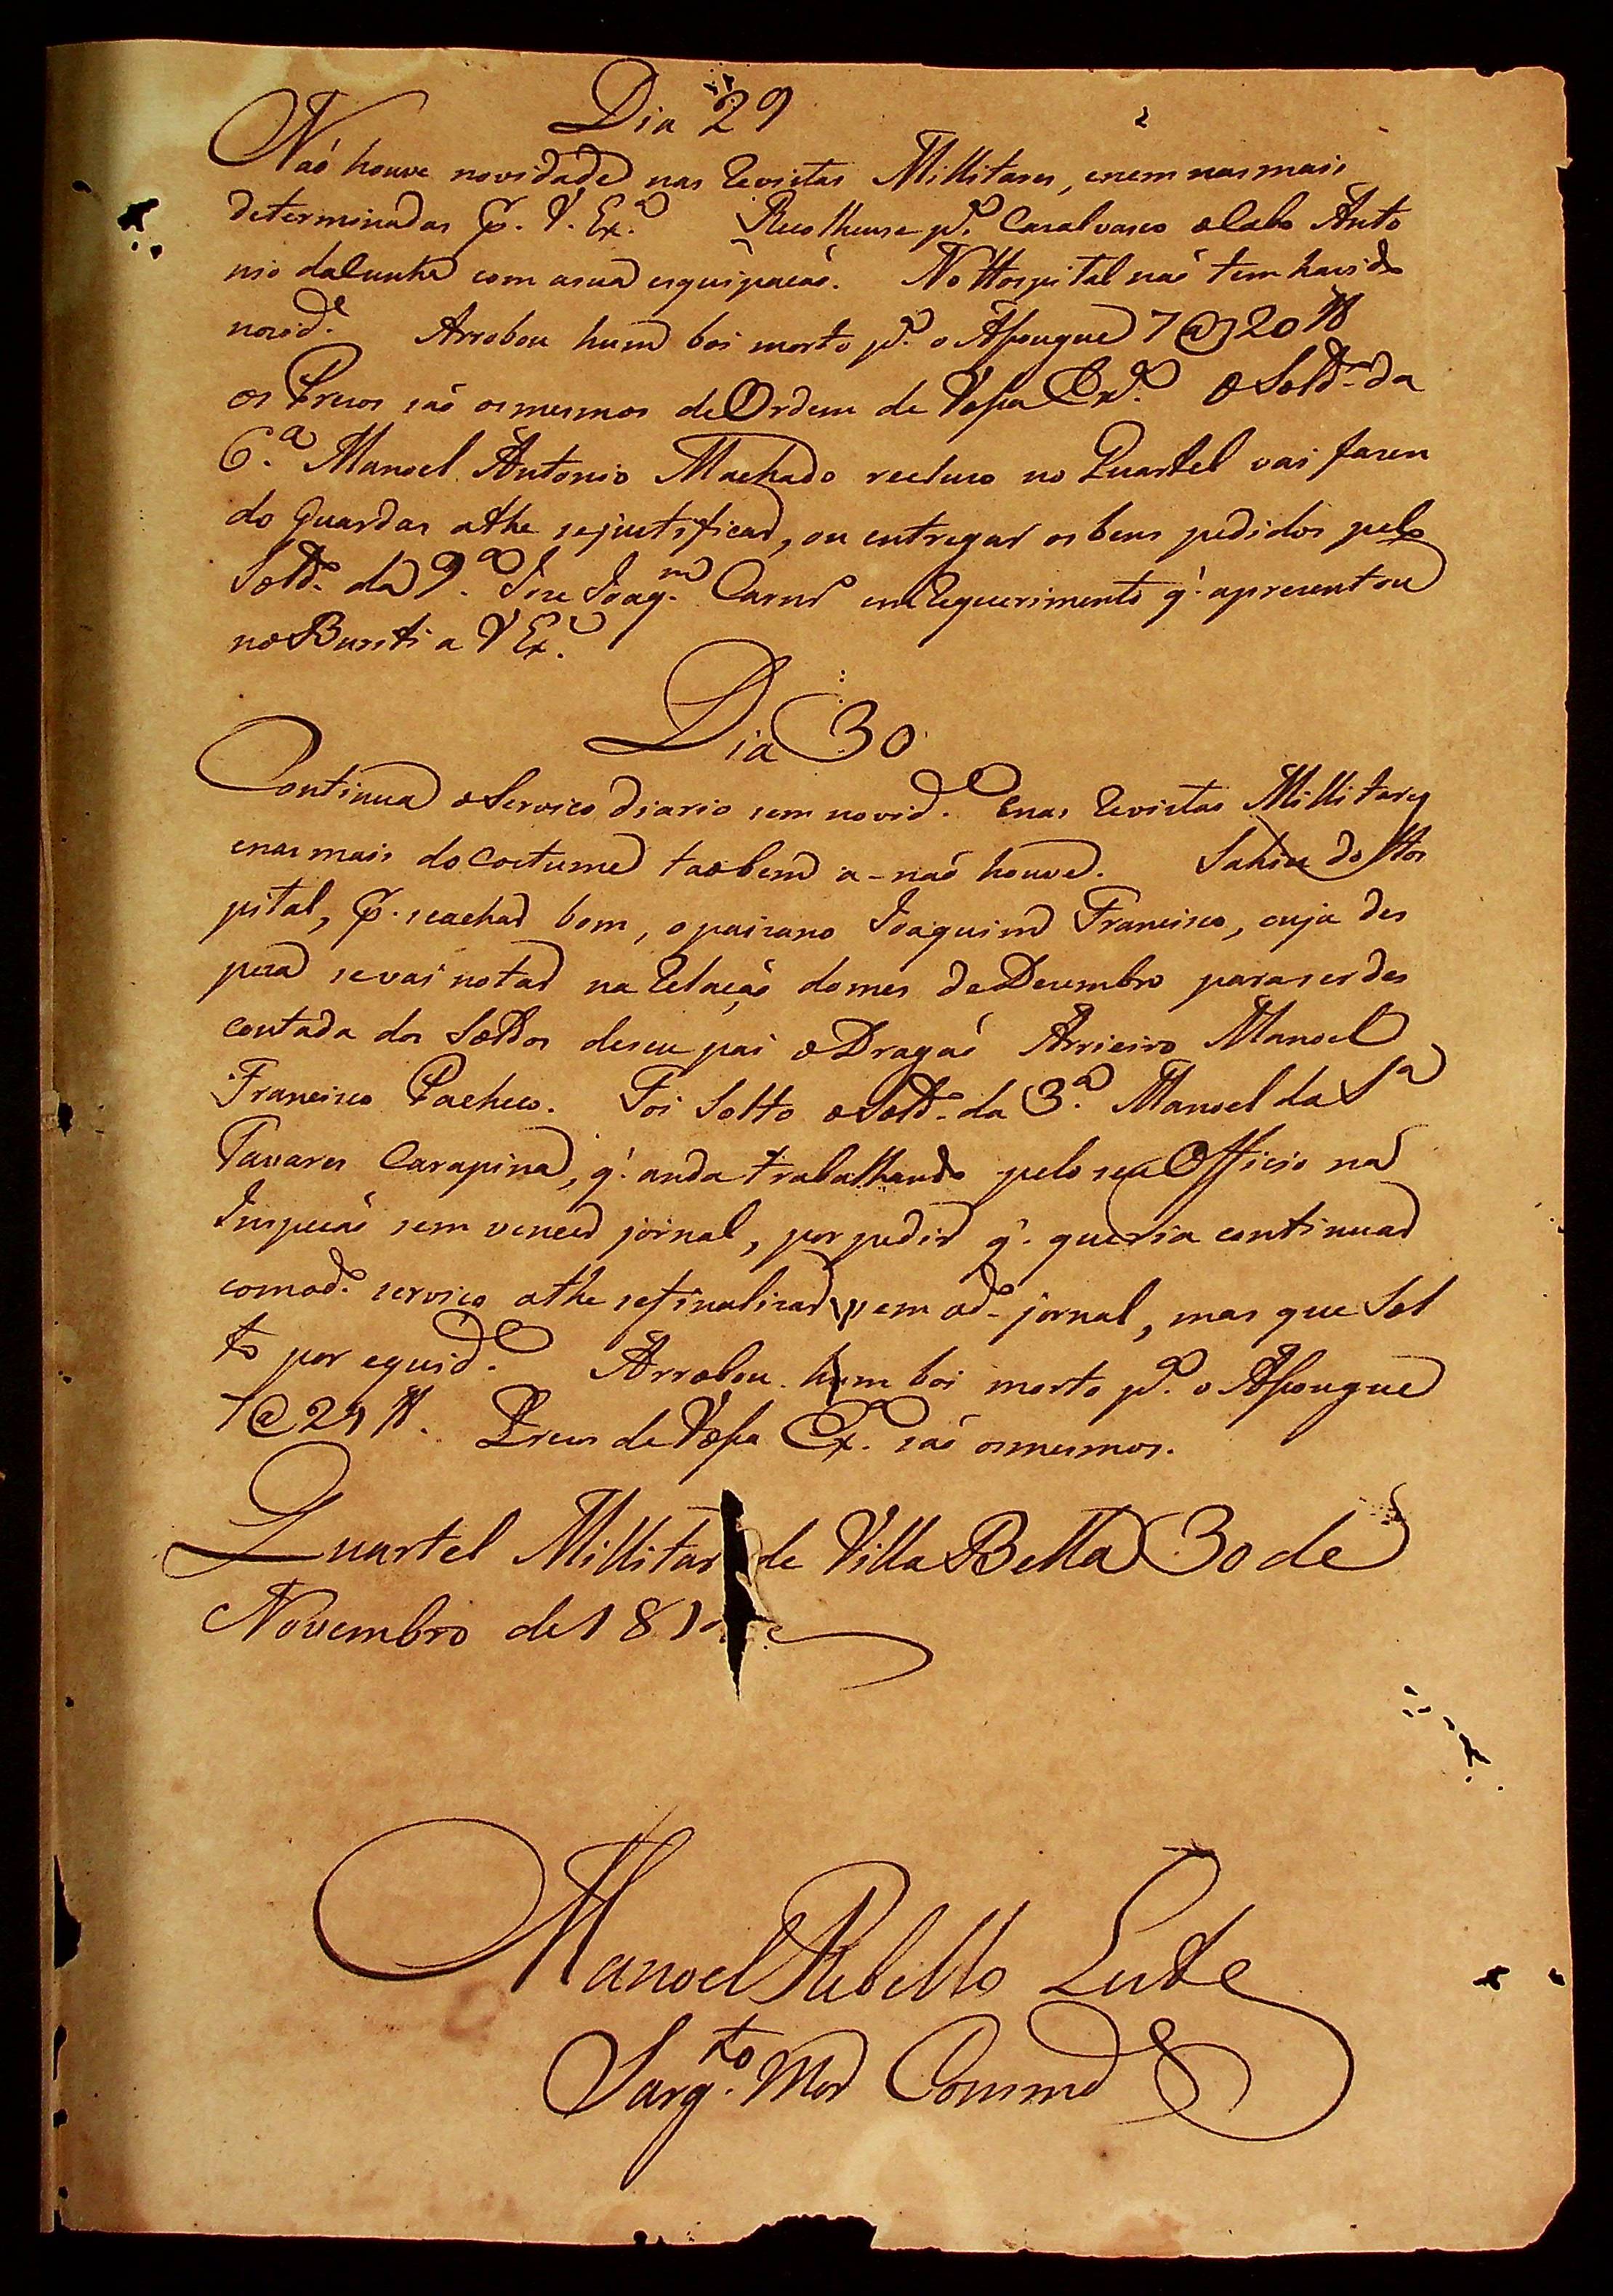 Dia 29
Naõ houve novidade nas Revistas Millitares, enem nas mais
determinadas p. V. Ex.ª Recolheuse p.ª Casalvasco o Cabo Anto
nio da Cunha com asua esquipacaõ. No Hospital naõ tem havido
novid.e Arrobou hum boi morto p.ª o Assougue 7 @ 20 ℔
os Prezos saõ osmesmos de Ordem de Vossa Ex.ª O Sold.º da
6.ª Manoel Antonio Machado recluzo no Quartel vai fazen
do guardas athe sejustificar, ou entregar os bens pedidos pelo
Sold.º da 9.ª Joze Joaq.m em Requerimento q. apresentou
no Buriti a V Ex.ª
Dia 30
Continua o Servico diario sem novid.e Enas Revistas Millitares
enas mais do Costume taobem a-naõ houve. Sahiu do Hos
pital, p. seachar bom, o paizano Joaquim Francisco, cuja des
peza sevai notar na Relaçaõ domes de Dezembro paraserdes
contada dos Soldos deseu pai o Dragaõ Arrieiro Manoel
Francisco Pacheco. Foi Solto o Sold.º da 3.ª Manoel da S.ª
Tavares Carapina, q. anda trabalhando pelo seu Officio na
Inspecaõ sem vencer jornal, por pedir q. queria continuar
comod.º servico athe sefinalizar, sem od.º jornal, mas que Sol
to por equid.e Arrobou hum boi morto p.ª o Assougue
7 @ 24 ℔. Prezos de Vossa Ex.ª saõ osmesmos.
Quartel Millitar de Villa Bella 30 de
Novembro de 181
Manoel Rebello Leite
Sarg.to Mor Comm.e